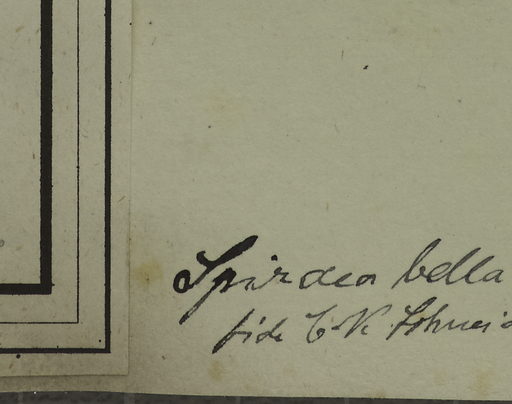 Spiraea bella
fide C. K. Schneid